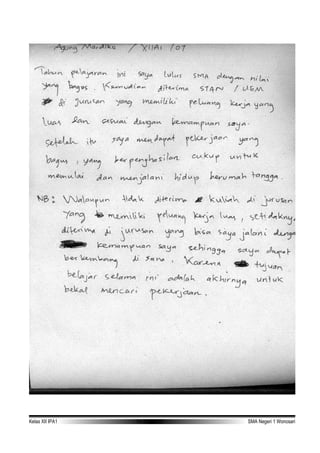 Agung Mardika / XIIA1 / 07
Tahun pelajaran ini saya lulus SMA dengan nilai
yang bagus. Kemudian diterima STAN / UGM
di jurusan yang memiliki peluang kerja yang
luas dan sesuai dengan kemampuan saya.
Setelah itu saya mendapat pekerjaan yang
bagus, yang berpenghasilan cukup untuk
memulai dan menjalani hidup berumah tangga.
NB: Walaupun tidak diterima kuliah di jurusan
yang memiliki peluang kerja luas, setidakny.
diterima di jurusan yang bisa saya jalani denga
kemampuan saya sehingga saya dapat
berkembang di sana. Karena tujuan
belajar selama ini adalah akhirnya untuk
bekal mencari pekerjaan.
Kelas XII IPA1 SMA Negeri 1 Wonosari